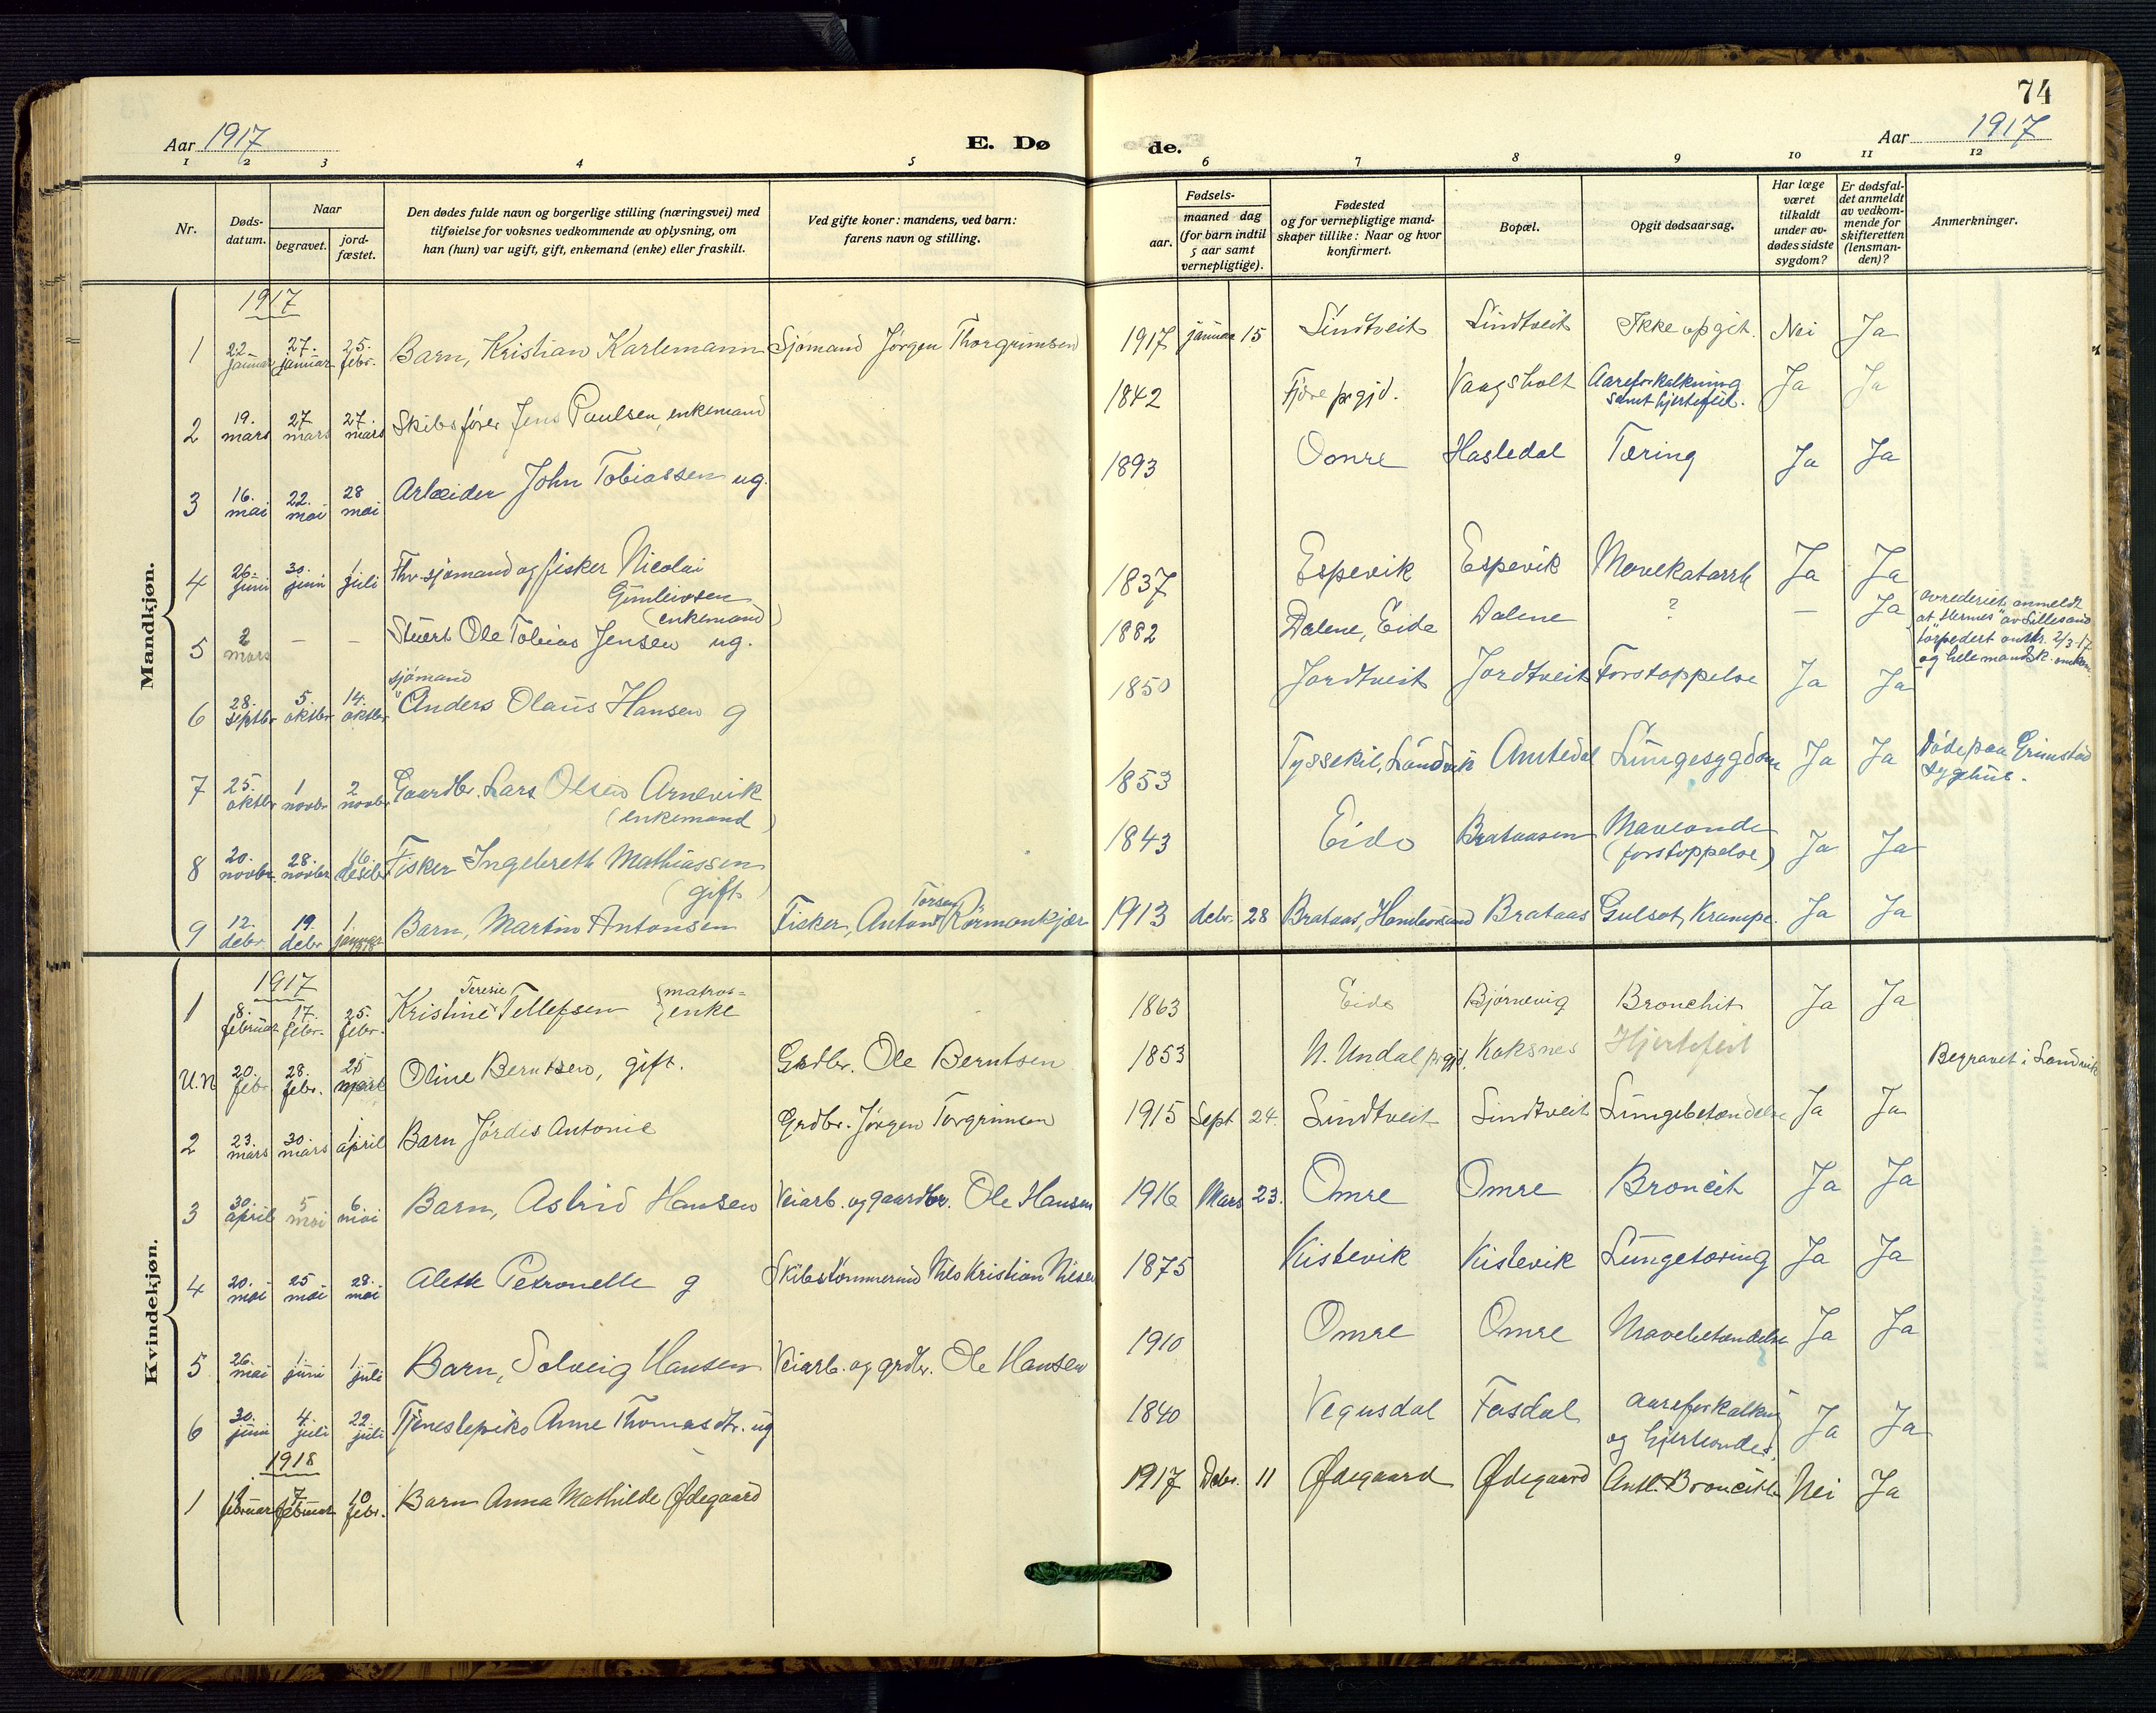 74
Aar 1917
E. Dø
de.
Aar 1917
1 2 3 4 5 6 7 8 9 10 11 12
Nr.
Døds-
datum.
Naar
begravet.
jord-
fæstet.
Den dødes fulde navn og borgerlige stilling (næringsvei) med
tilføielse for voksnes vedkommende av oplysning, om
han (hun) var ugift, gift, enkemand (enke) eller fraskilt.
Ved gifte koner: mandens, ved barn:
farens navn og stilling.
Fødsels-
aar.
maaned dag
(for barn indtil
5 aar samt
vernepligtige).
Fødested
og for vernepligtige mand-
skaper tillike: Naar og hvor
konfirmert.
Bopæl.
Opgit dødsaarsag.
Har læge
været
tilkaldt
under av-
dødes sidste
sygdom?
Er dødsfal-
det anmeldt
av vedkom-
mende for
skifteretten
(lensman-
den)?
Anmerkninger.
Mandkjøn.
1917
1 22. januar 27. januar 25. febr. Barn, Kristian Karlemann Sjømand Jørgen Thorgrimsen 1917 januar 15 Lindtveit Lindtveit Ikke opgit. Nei Ja
2 19. mars 27 mars 27. mars Skibsfører Jens Paulsen, enkemand 1842 Fjære prgjd. Vaagsholt Aareforkalkning Ja Ja
samt hjertefeil.
3 16. mai 22. mai 28 mai Arbeider John Tobiassen ug. 1893 Oomre Hasledal Tæring Ja Ja
4 26. juni 30. juni 1 juli Fhv. sjømand og fisker Nicolai 1837 Espevik Espevik Mavekatarrh Ja Ja
Gunleivsen
(enkemand)
5 2 mars – – Stuert Ole Tobias Jensen ug. 1882 Dalene, Eide Dalene ? – Ja av rederiet anmeldt
at "Hermes" av Lillesand
torpedert 2/3-17
og hele mandsk. omkom
sjømand
6 28. septbr 5. oktbr 14. oktbr " Anders Olaus Hansen g 1850 Jordtveit Jordtveit Forstoppelse Ja Ja
7 25. oktbr 1 novbr 2 novbr Gaardbr. Lars Olsen Arnevik 1853 Tyssekil, Landvik Amtedal Lungesygdom Ja Ja Døde paa Grimstad
(enkemand) sygehus.
8 20. novbr. 28. novbr. 16. desbr Fisker Ingebreth Mathiassen 1843 Eide Brataasen Maveonde Ja Ja
(gift) (forstoppelse)
9 12. debr. 19. debr 1. januar 1918 Barn, Martin Antonsen Fisker, Anton Torsen Rörmonkjær 1913 debr. 28 Brataas, Homborsund Brataas Gulsot, Krampe. Ja Ja
Kvindekjøn.
1917
1 8. februar 17. febr. 25. febr. Kristine Teresie Tellefsen matros= 1863 Eide Bjørnevig Bronchit Ja Ja
enke
U.N 20. febr 28. febr. 25 Oline Berntsen, gift. Grdbr. Ole Berntsen 1853 N. Undal prgjd. Koksnes Hjertefeil Begravet i Landvik
2 23. mars 30. mars 1 april Barn Jørdis Antonie Grdbr. Jørgen Torgrimsen 1915 Sept 24. Lindtveit Lindtveit Lungebetændelse Ja Ja
3 30. april 5 mai 6. mai Barn, Astrid Hansen Veiarb. og gaardbr. Ole Hansen 1916 Mars 23. Omre Omre Broncit Ja Ja
4 20. mai 25 mai 28. mai Alette Petronelle g Skibstømmermd Nils Kristian Nilsen 1875 Kistevik Kistevik Lungetæring Ja Ja
5 26. mai 1 juni 1 juli Barn, Solveig Hansen Veiarb. og grdbr. Ole Hansen 1910 Omre Omre Mavebetændelse Ja Ja
6 30. juni 4. juli 22. juli Tjenestepike Anne Thomasdtr. ug 1840 Vegusdal Fosdal Aareforkalkning Ja Ja
og hjerteonde.
1918
1 1 februar 7 februar 10 febr. Barn Anna Mathilde Ødegaard 1917 Debr. 11 Ødegaard Ødegaard Antl. Broncitt Nei Ja